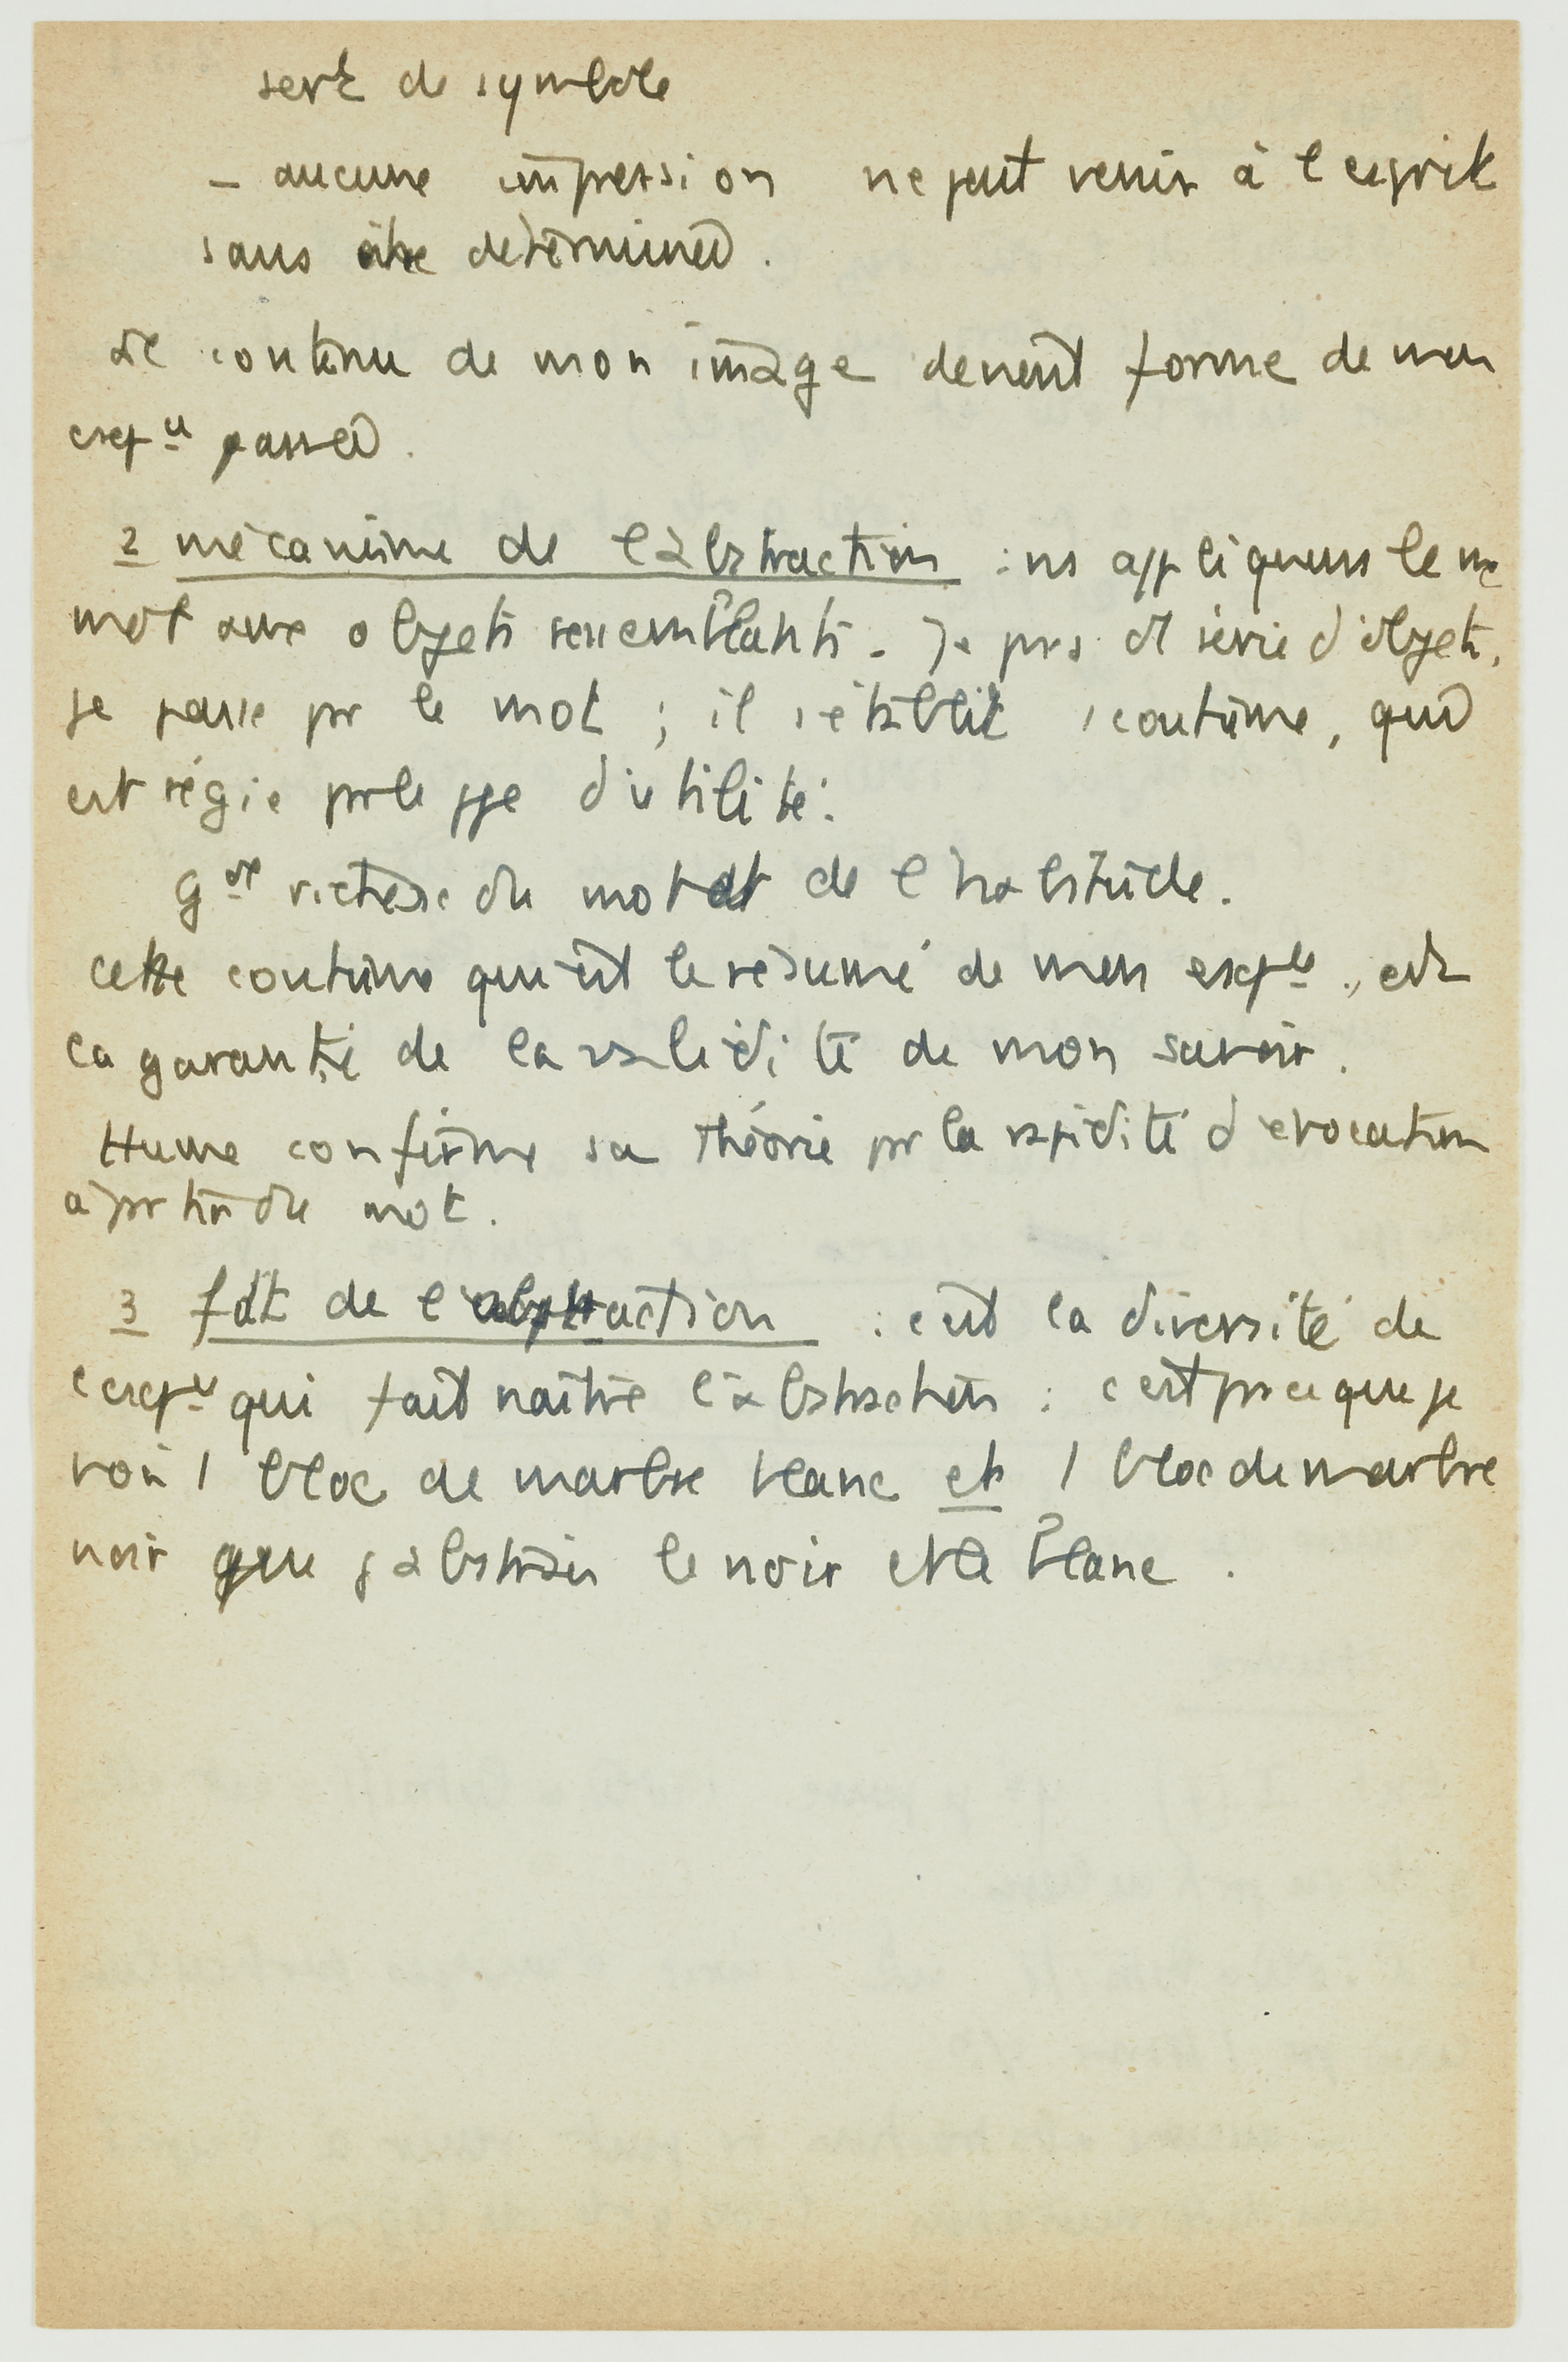 sert de symbole
- aucune impression ne peut venir à l'esprit
sans être déterminée.
Le contenu de mon image devient forme de mon
exp^ce passée.
2 mécanisme de l'abstraction : ns appliquons le m̂
mot aux objets ressemblants. Je pss d'1 série d'objets,
je passe pr le mot ; il s'établit 1 coutume, qui
est régie pr le ppe d'utilité.
G^de richesse du mot et de l'habitude.
Cette coutume qui est le résumé de mon exp^ce, est
la garantie de la validité de mon savoir.
Hume confirme sa théorie pr la rapidité d'évocation
à prtir du mot.
3 fait de l'abstraction : c'est la diversité de
l'exp^ce qui fait naître l'abstraction : c'est prce que je
vois 1 bloc de marbre blanc et 1 bloc de marbre
noir que j'abstrais le noir et le blanc.